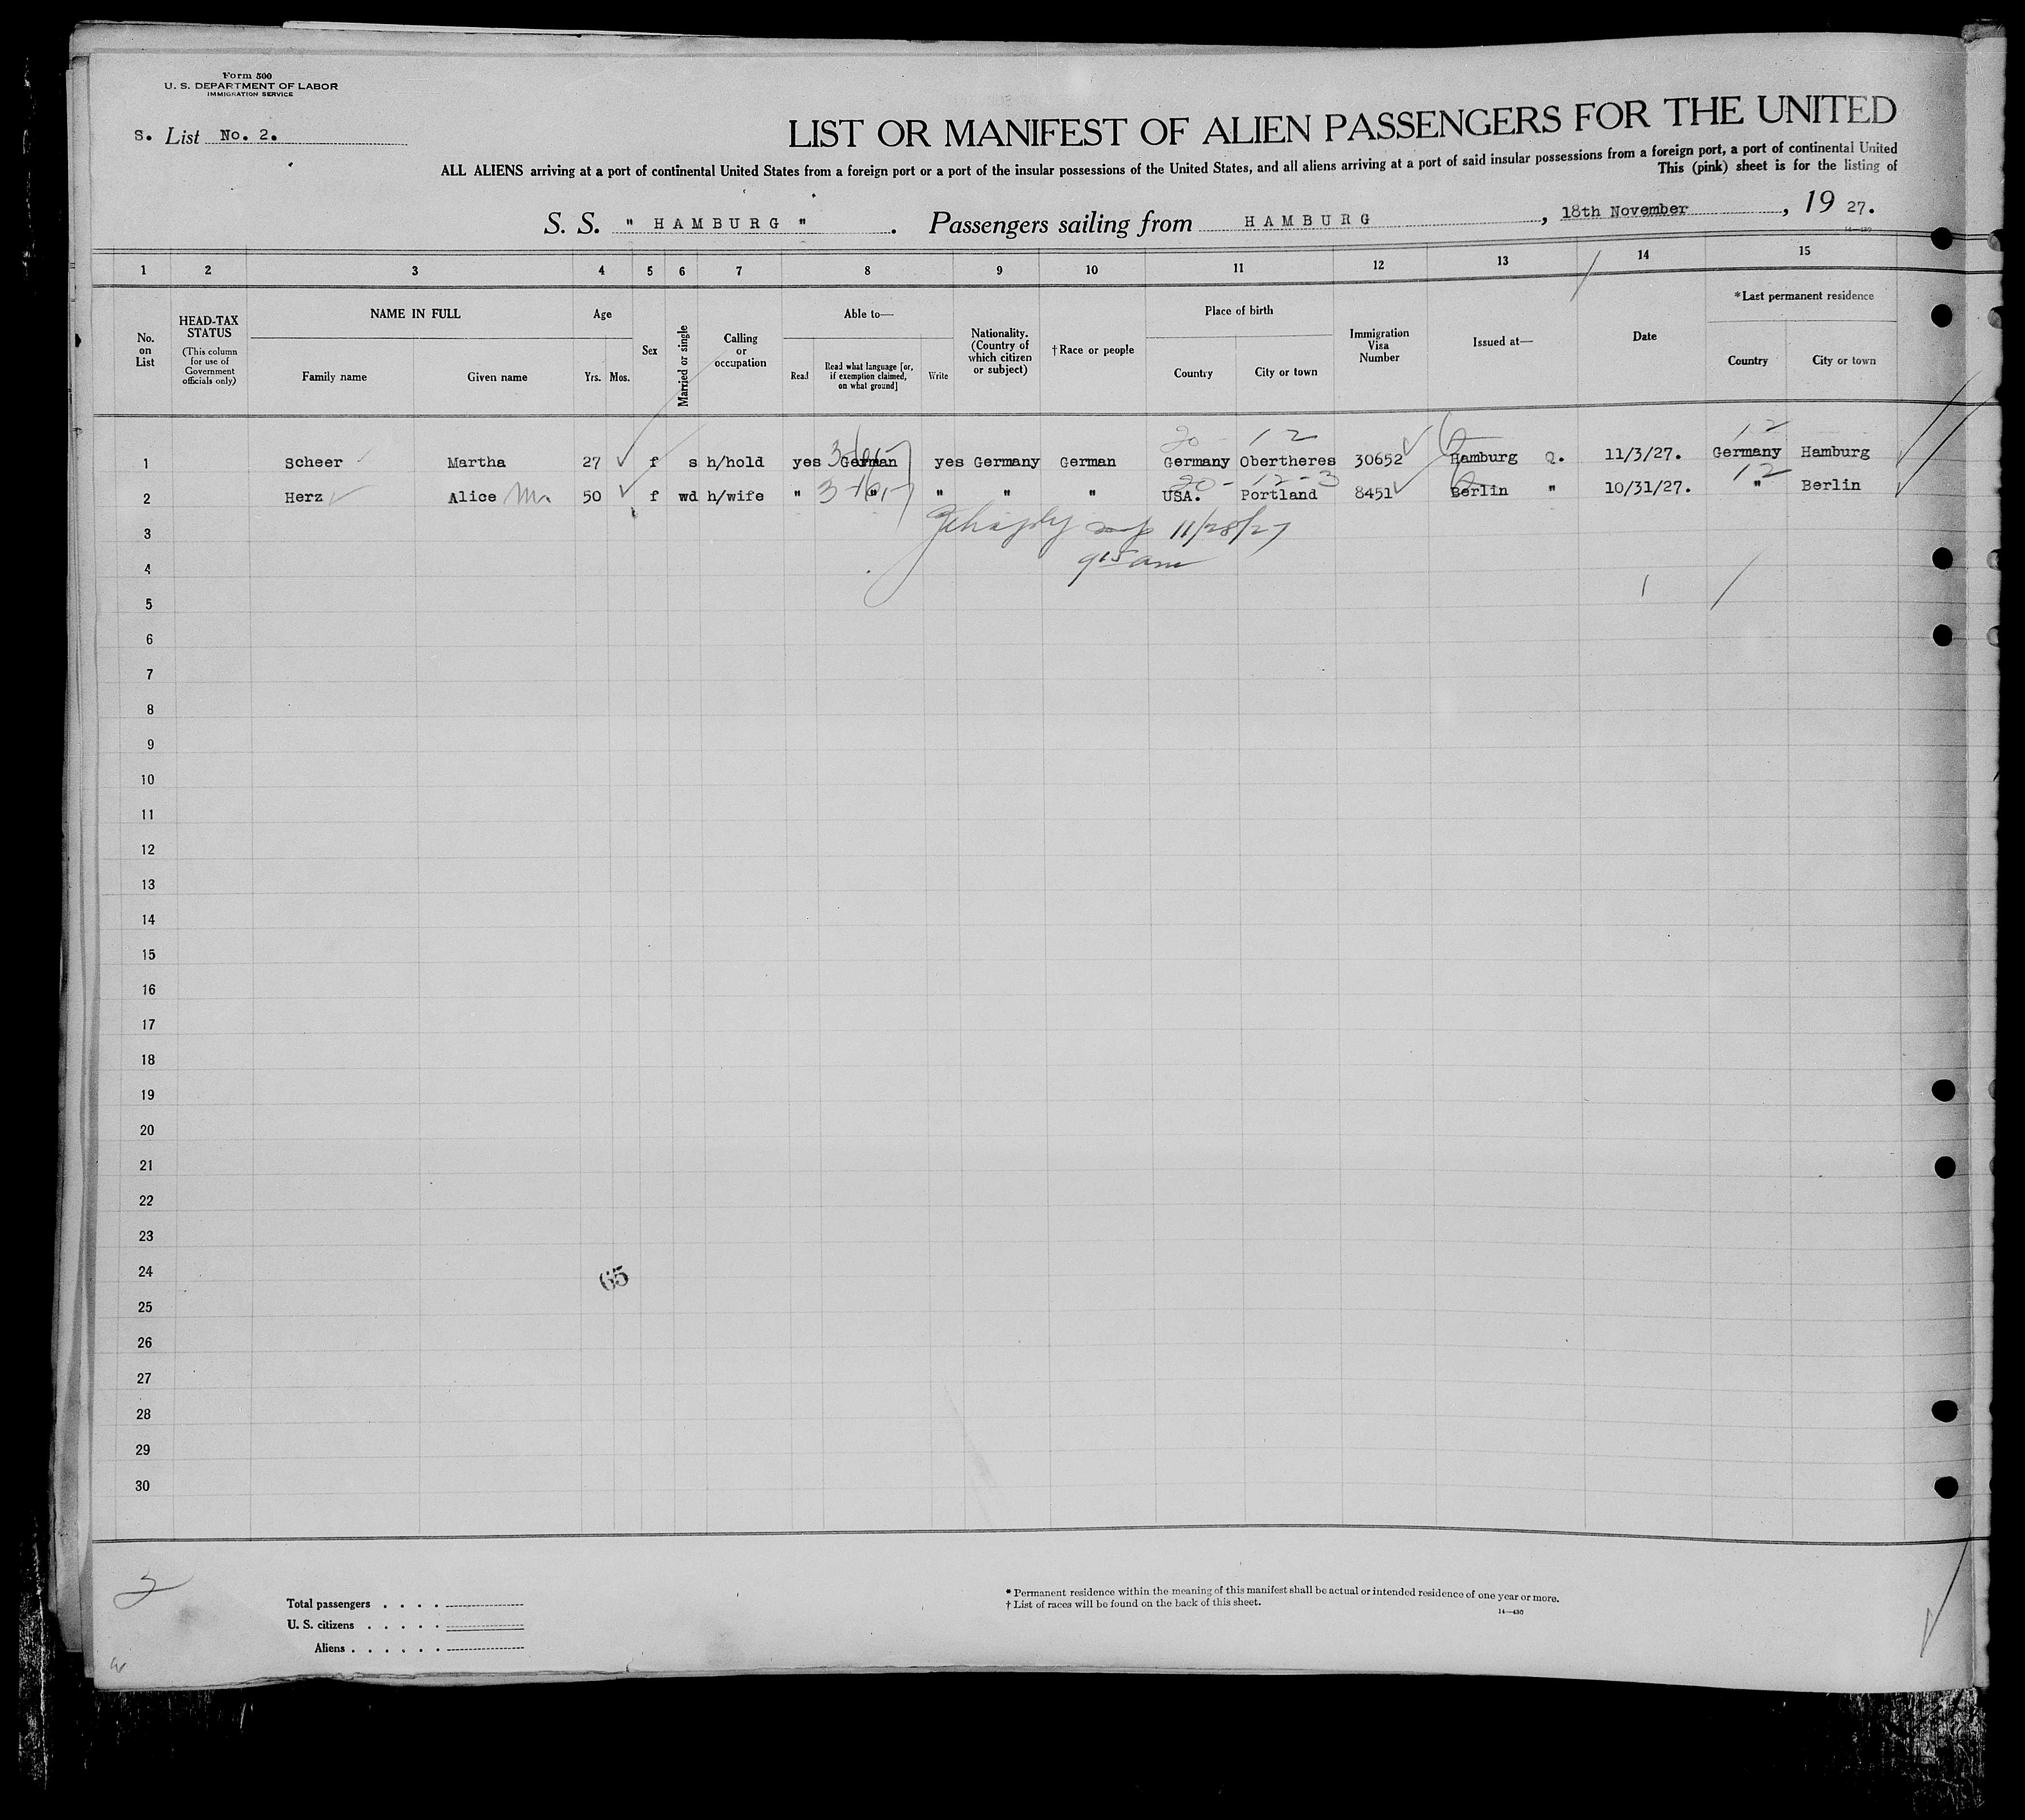 Form 500
U. S. DEPARTMENT OF LABOR
IMMIGRATION SERVICE
S. List No. 2.
LIST OR MANIFEST OF ALIEN PASSENGERS FOR THE UNITED
ALL ALIENS arriving at a port of continental United States from a foreign port or a port of the insular possessions of the United States, and all aliens arriving at a port of said insular possessions from a foreign port, a port of continental United
This (pink) sheet is for the listing of
S. S. " HAMBURG ". Passengers sailing from HAMBURG, 18th November, 19 27.
14—430
1 2 3 4 5 6 7 8 9 10 11 12 13 14 15
No. on List
HEAD-TAX STATUS (This column for use of Government officials only)
NAME IN FULL
Family name Given name
Age
Yrs. Mos.
Sex
Married or single
Calling or occupation
Able to—
Read Read what language [or, if exemption claimed, on what ground] Write
Nationality. (Country of which citizen or subject)
†Race or people
Place of birth
Country City or town
Immigration Visa Number
Issued at—
Date
*Last permanent residence
Country City or town
20 12 12
1 Scheer Martha 27 f s h/hold yes German yes Germany German Germany Obertheres 30652 Hamburg Q. 11/3/27. Germany Hamburg
20 - 12 - 3 12
2 Herz Alice M. 50 f wd h/wife " " " " " USA. Portland 8451 Berlin " 10/31/27. " Berlin
3 11/28/27
4 9 15 am
5
6
7
8
9
10
11
12
13
14
15
16
17
18
19
20
21
22
23
24
65
25
26
27
28
29
30
Total passengers . . . .
U. S. citizens . . . . .
Aliens . . . . . .
* Permanent residence within the meaning of this manifest shall be actual or intended residence of one year or more.
† List of races will be found on the back of this sheet.
14—430